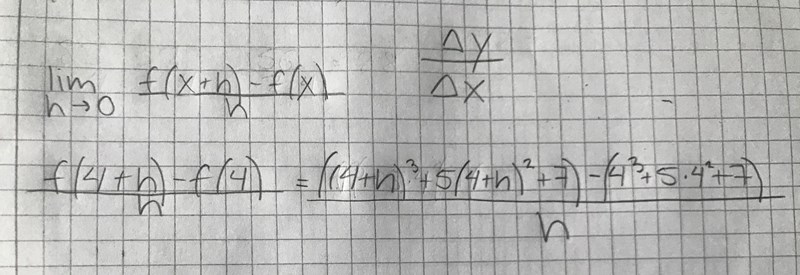 lim h→0 f(x+h)-f(x) / h Δy / Δx
f(4+h)-f(4) / h = ((4+h)³+5(4+h)²+7)-(4³+5·4²+7) / h